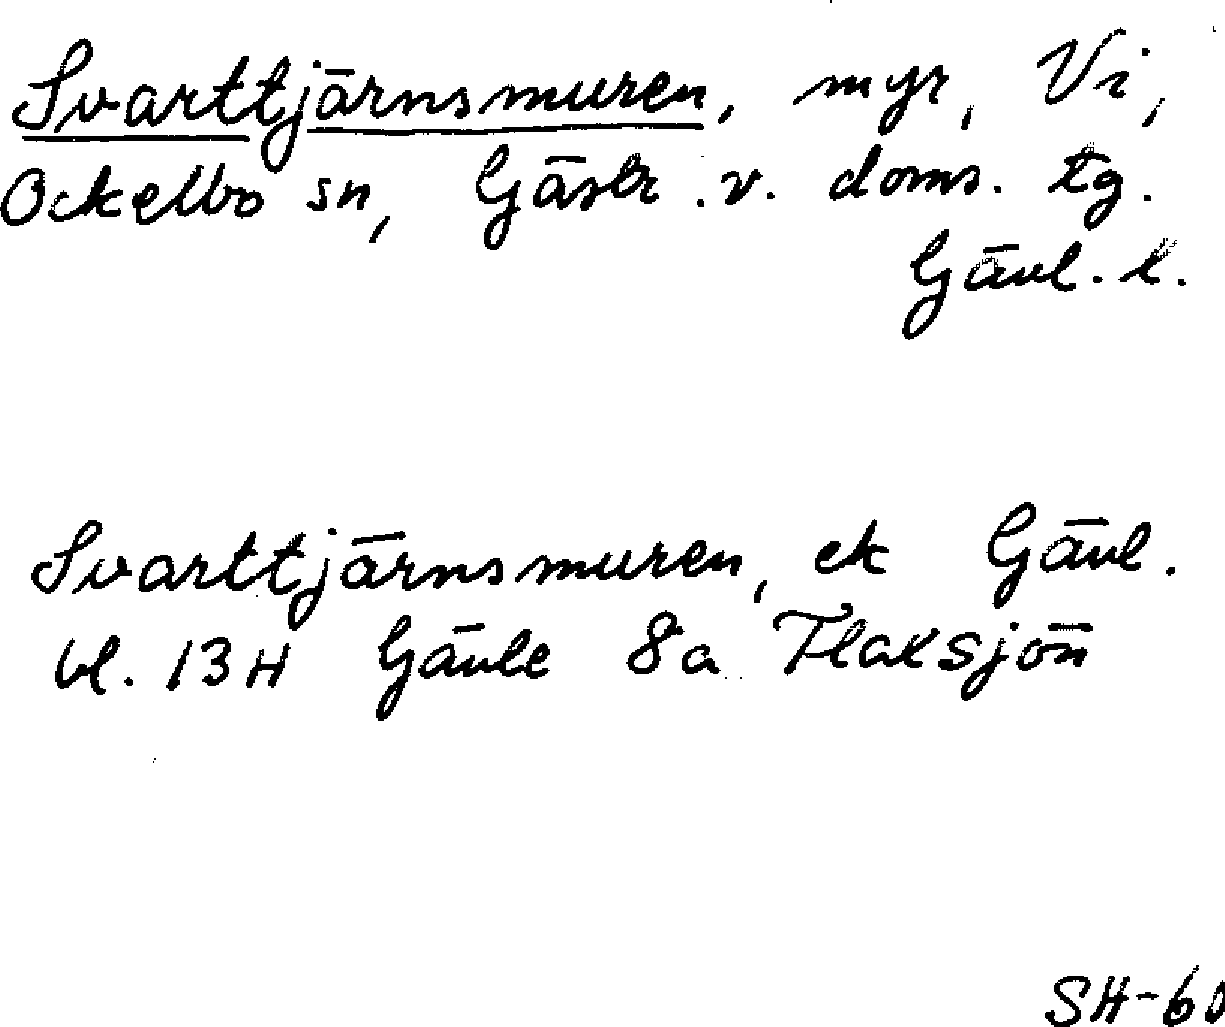 Svarttjärnsmuren, myr, Vi,
Ockelbo sn, Gästr. v. doms. tg.
Gävl. l.
Svarttjärnsmuren, ek Gävl.
bl. 13H Gävle 8a Flaksjön
SH-60